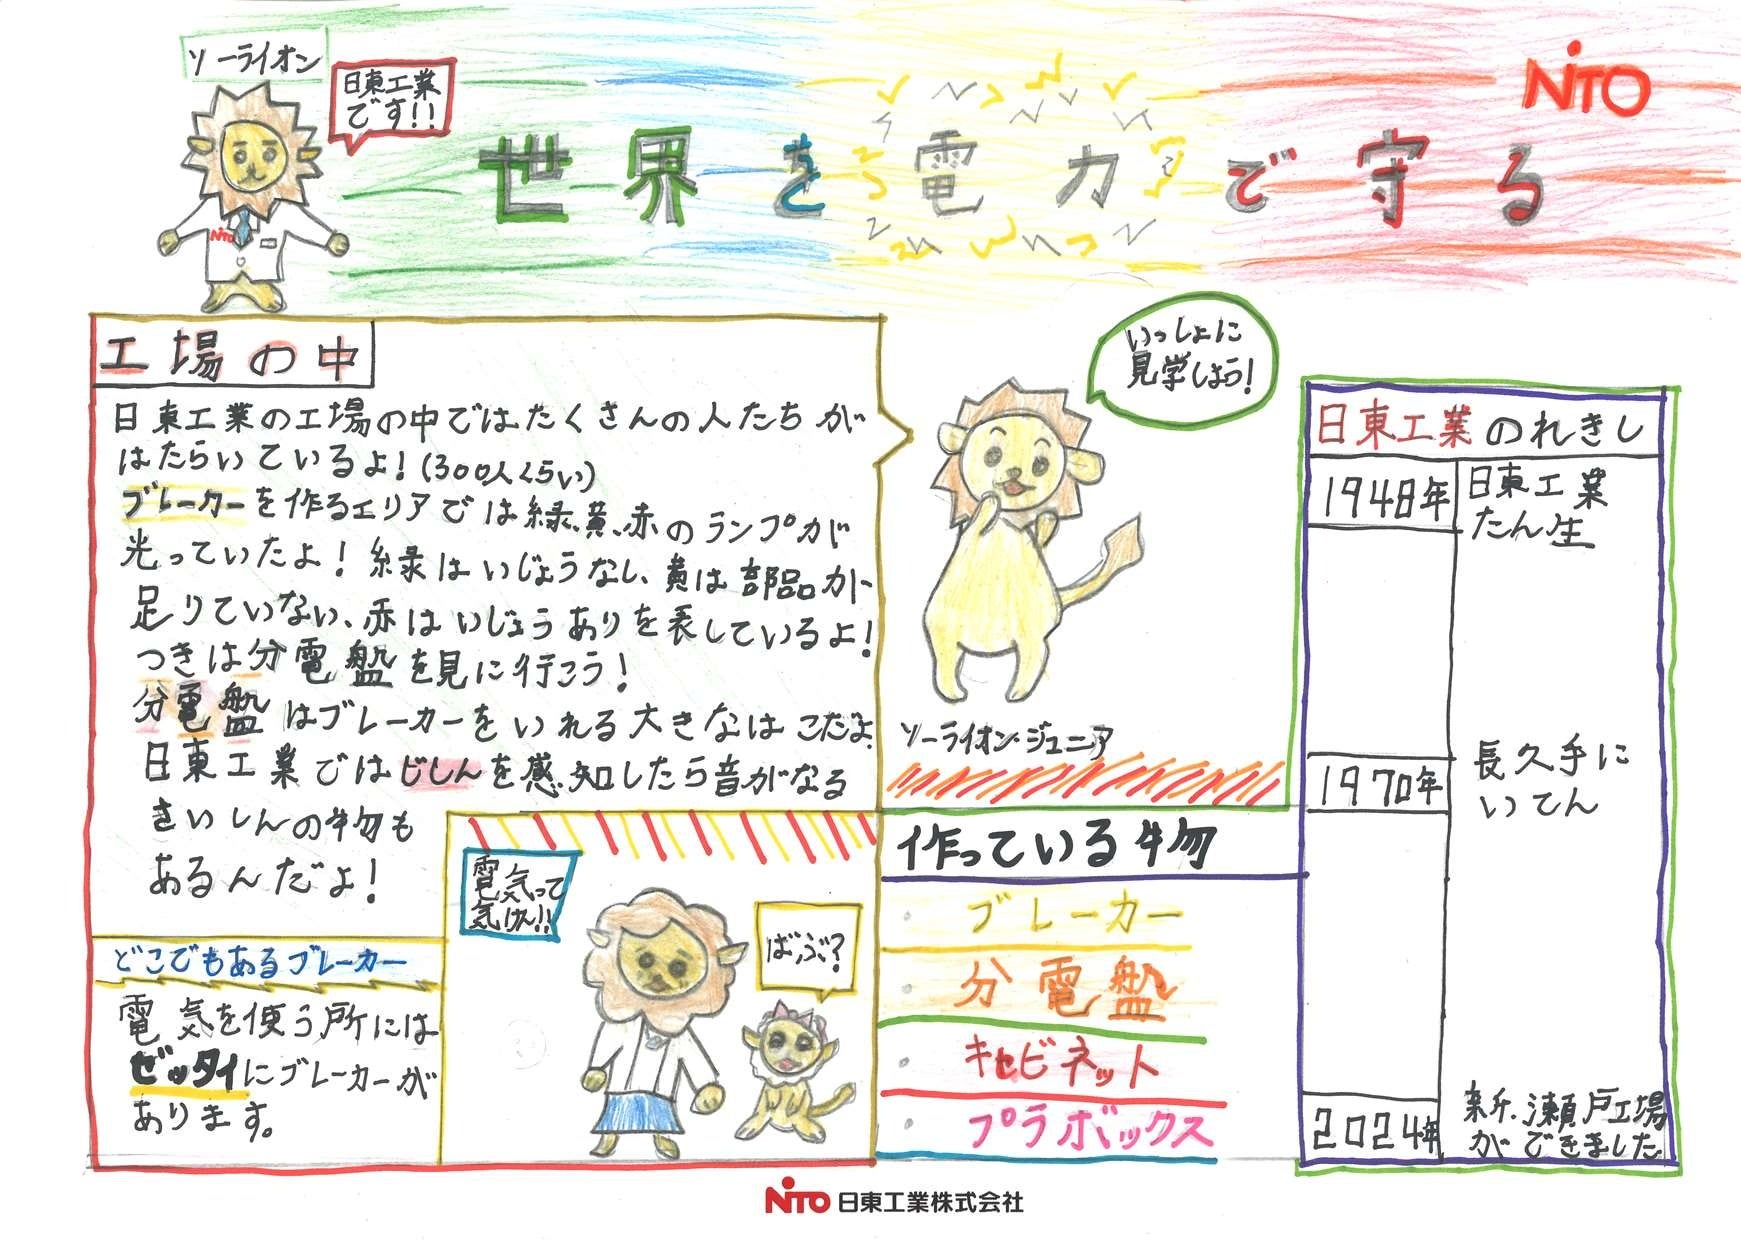 ソーライオン
日東工業
です!!
NiTO
世界を電力で守る
NiTO
工場の中
日東工業の工場の中ではたくさんの人たちが
はたらいているよ!(300人くらい)
ブレーカーを作るエリアでは緑、黄、赤のランプが
光っていたよ!緑はいじょうなし、黄は部品が
足りていない、赤はいじょうありを表しているよ!
つぎは分電盤を見に行こう!
分電盤はブレーカーをいれる大きなはこだよ。
日東工業ではじしんを感知したら音がなる
さいしんの物も
あるんだよ!
いっしょに
見学しよう!
ソーライオン・ジュニア
どこでもあるブレーカー
電気を使う所には
ゼッタイにブレーカーが
あります。
電気って
気けん!!
ばぶ?
作っている物
・ブレーカー
・分電盤
・キャビネット
・プラボックス
日東工業のれきし
1948年 日東工業
たん生
1970年 長久手に
いてん
2024年 新、瀬戸工場
ができました
NiTO 日東工業株式会社